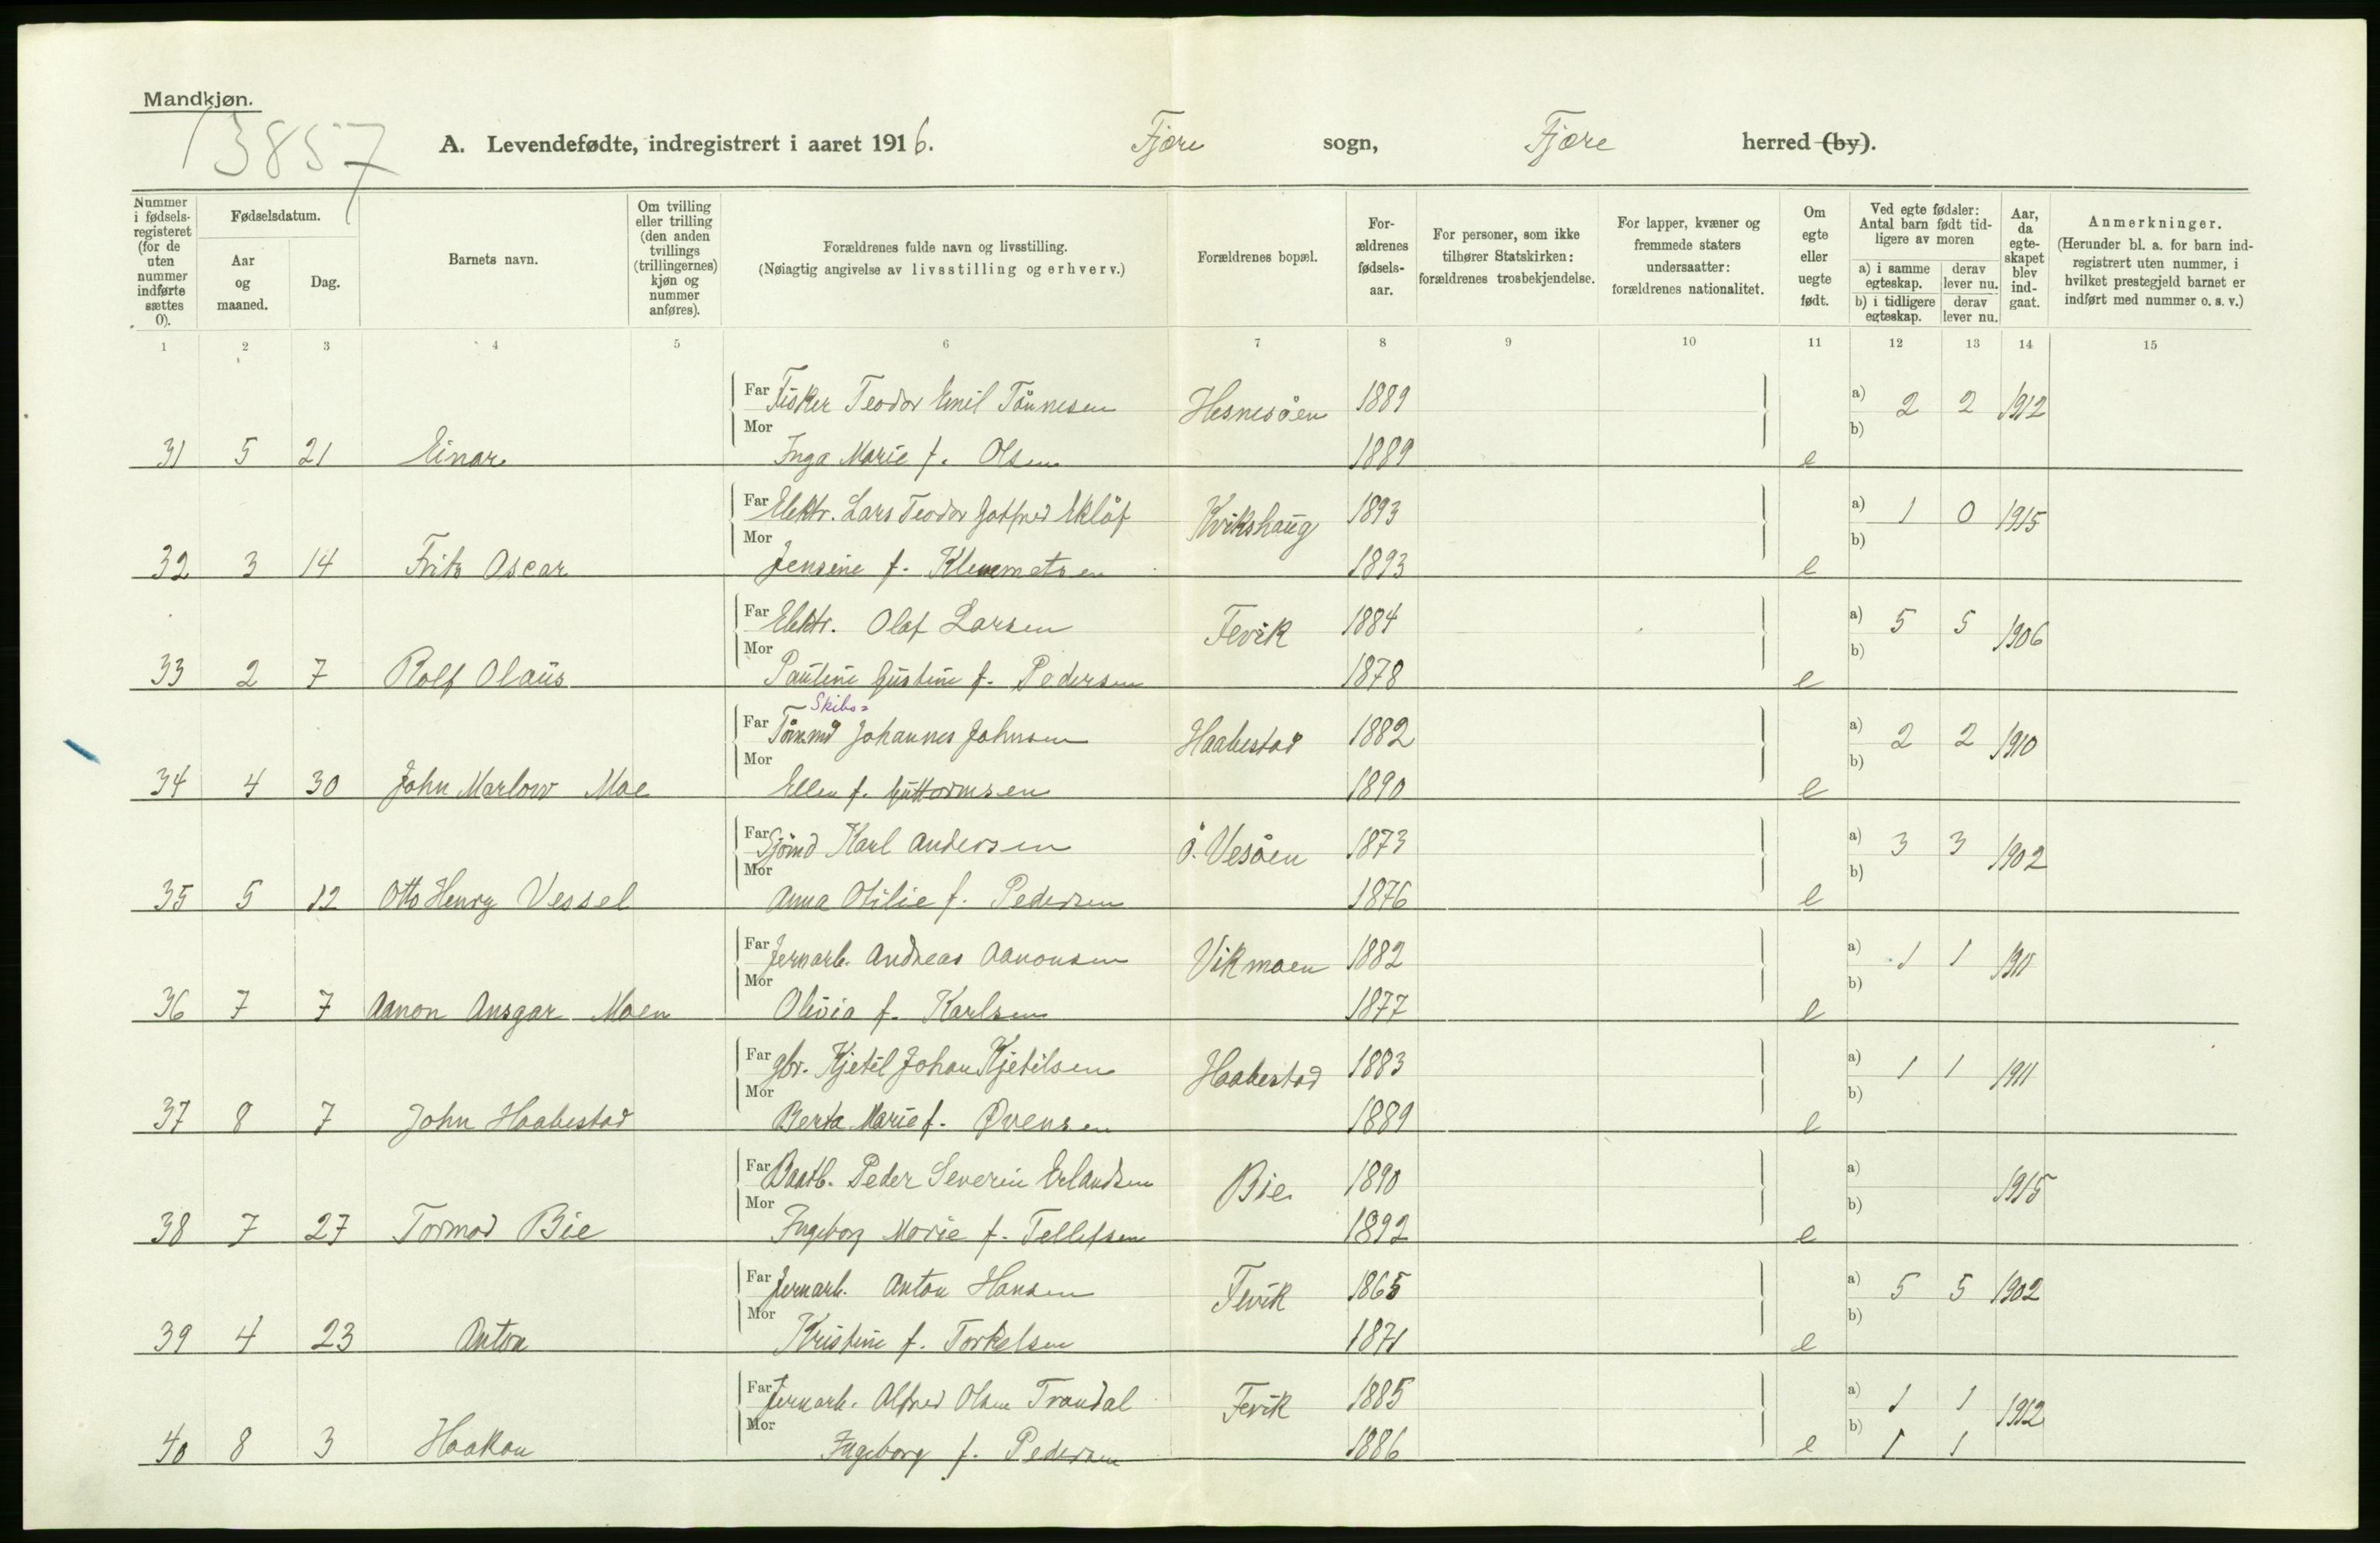 Mandkjøn.
13857
A. Levendefødte, indregistrert i aaret 1916. Fjære sogn, Fjære herred (by).
Nummer i fødsels-registeret (for de uten nummer indførte sættes 0).
Fødselsdatum.
Aar og maaned.
Dag.
Barnets navn.
Om tvilling eller trilling (den anden tvillings (trillingernes) kjøn og nummer anføres).
Forældrenes fulde navn og livsstilling.
(Nøiagtig angivelse av livsstilling og erhverv.)
Forældrenes bopæl.
For-ældrenes fødsels-aar.
For personer, som ikke tilhører Statskirken: forældrenes trosbekjendelse.
For lapper, kvæner og fremmede staters undersaatter: forældrenes nationalitet.
Om egte eller uegte født.
Ved egte fødsler: Antal barn født tid-ligere av moren
a) i samme egteskap. derav lever nu.
b) i tidligere egteskap. derav lever nu.
Aar, da egte-skapet blev ind-gaat.
Anmerkninger.
(Herunder bl. a. for barn ind-registrert uten nummer, i hvilket prestegjeld barnet er indført med nummer o. s. v.)
1 2 3 4 5 6 7 8 9 10 11 12 13 14 15
Far Fisker Teodor Emil Tönnesen Hesnesöen 1889 a) 2 2 1912
Mor b)
31 5 21 Einar Inga Marie f. Olsen 1889 e
Far Elektr. Lars Teodor Gotfred Eklöf Kvikshaug 1893 a) 1 0 1915
Mor b)
32 3 14 Frits Oscar Jensine f. Klemmetsen 1893 e
Far Elektr. Olaf Larsen Fevik 1884 a) 5 5 1906
Mor b)
33 2 7 Rolf Olaus Pauline Gustine f. Pedersen 1878 e
Skibs=
Far Tömmd Johannes Johnsen Haabestad 1882 a) 2 2 1910
Mor b)
34 4 30 John Marlow Moe Ellen f. Guttormsen 1890 e
Far Sjömd Karl Andersen Ö. Vesöen 1873 a) 3 3 1902
Mor b)
35 5 12 Otto Henry Vessel Anna Otilie f. Pedersen 1876 e
Far Jernarb. Andreas Aanonsen Vikmoen 1882 a) 1 1 1911
Mor b)
36 7 7 Aanon Ansgar Moen Olivia f. Karlsen 1877 e
Far gbr. Kjetil Johan Kjetilsen Haabestad 1883 a) 1 1 1911
Mor b)
37 8 7 John Haabestad Berta Marie f. Övensen 1889 e
Far Baatb. Peder Severin Erlandsen Bie 1890 a) 1915
Mor b)
38 7 27 Tormod Bie Ingeborg Marie f. Tellefsen 1892 e
Far Jernarb. Anton Hansen Fevik 1865 a) 5 5 1902
Mor b)
39 4 23 Anton Kristine f. Torkelsen 1871 e
Far Jernarb. Alfred Olsen Trondal Fevik 1885 a) 1 1 1912
Mor b)
40 8 3 Haakon Ingeborg f. Pedersen 1886 e 1 1